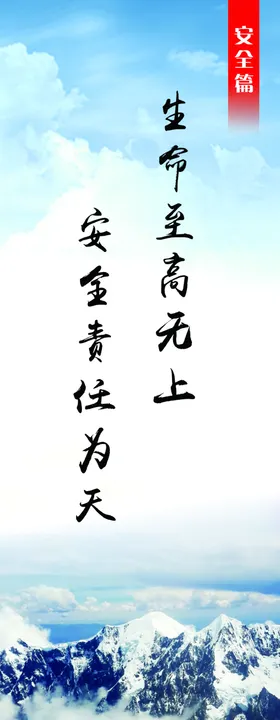 安全篇
生命至高无上
安全责任为天